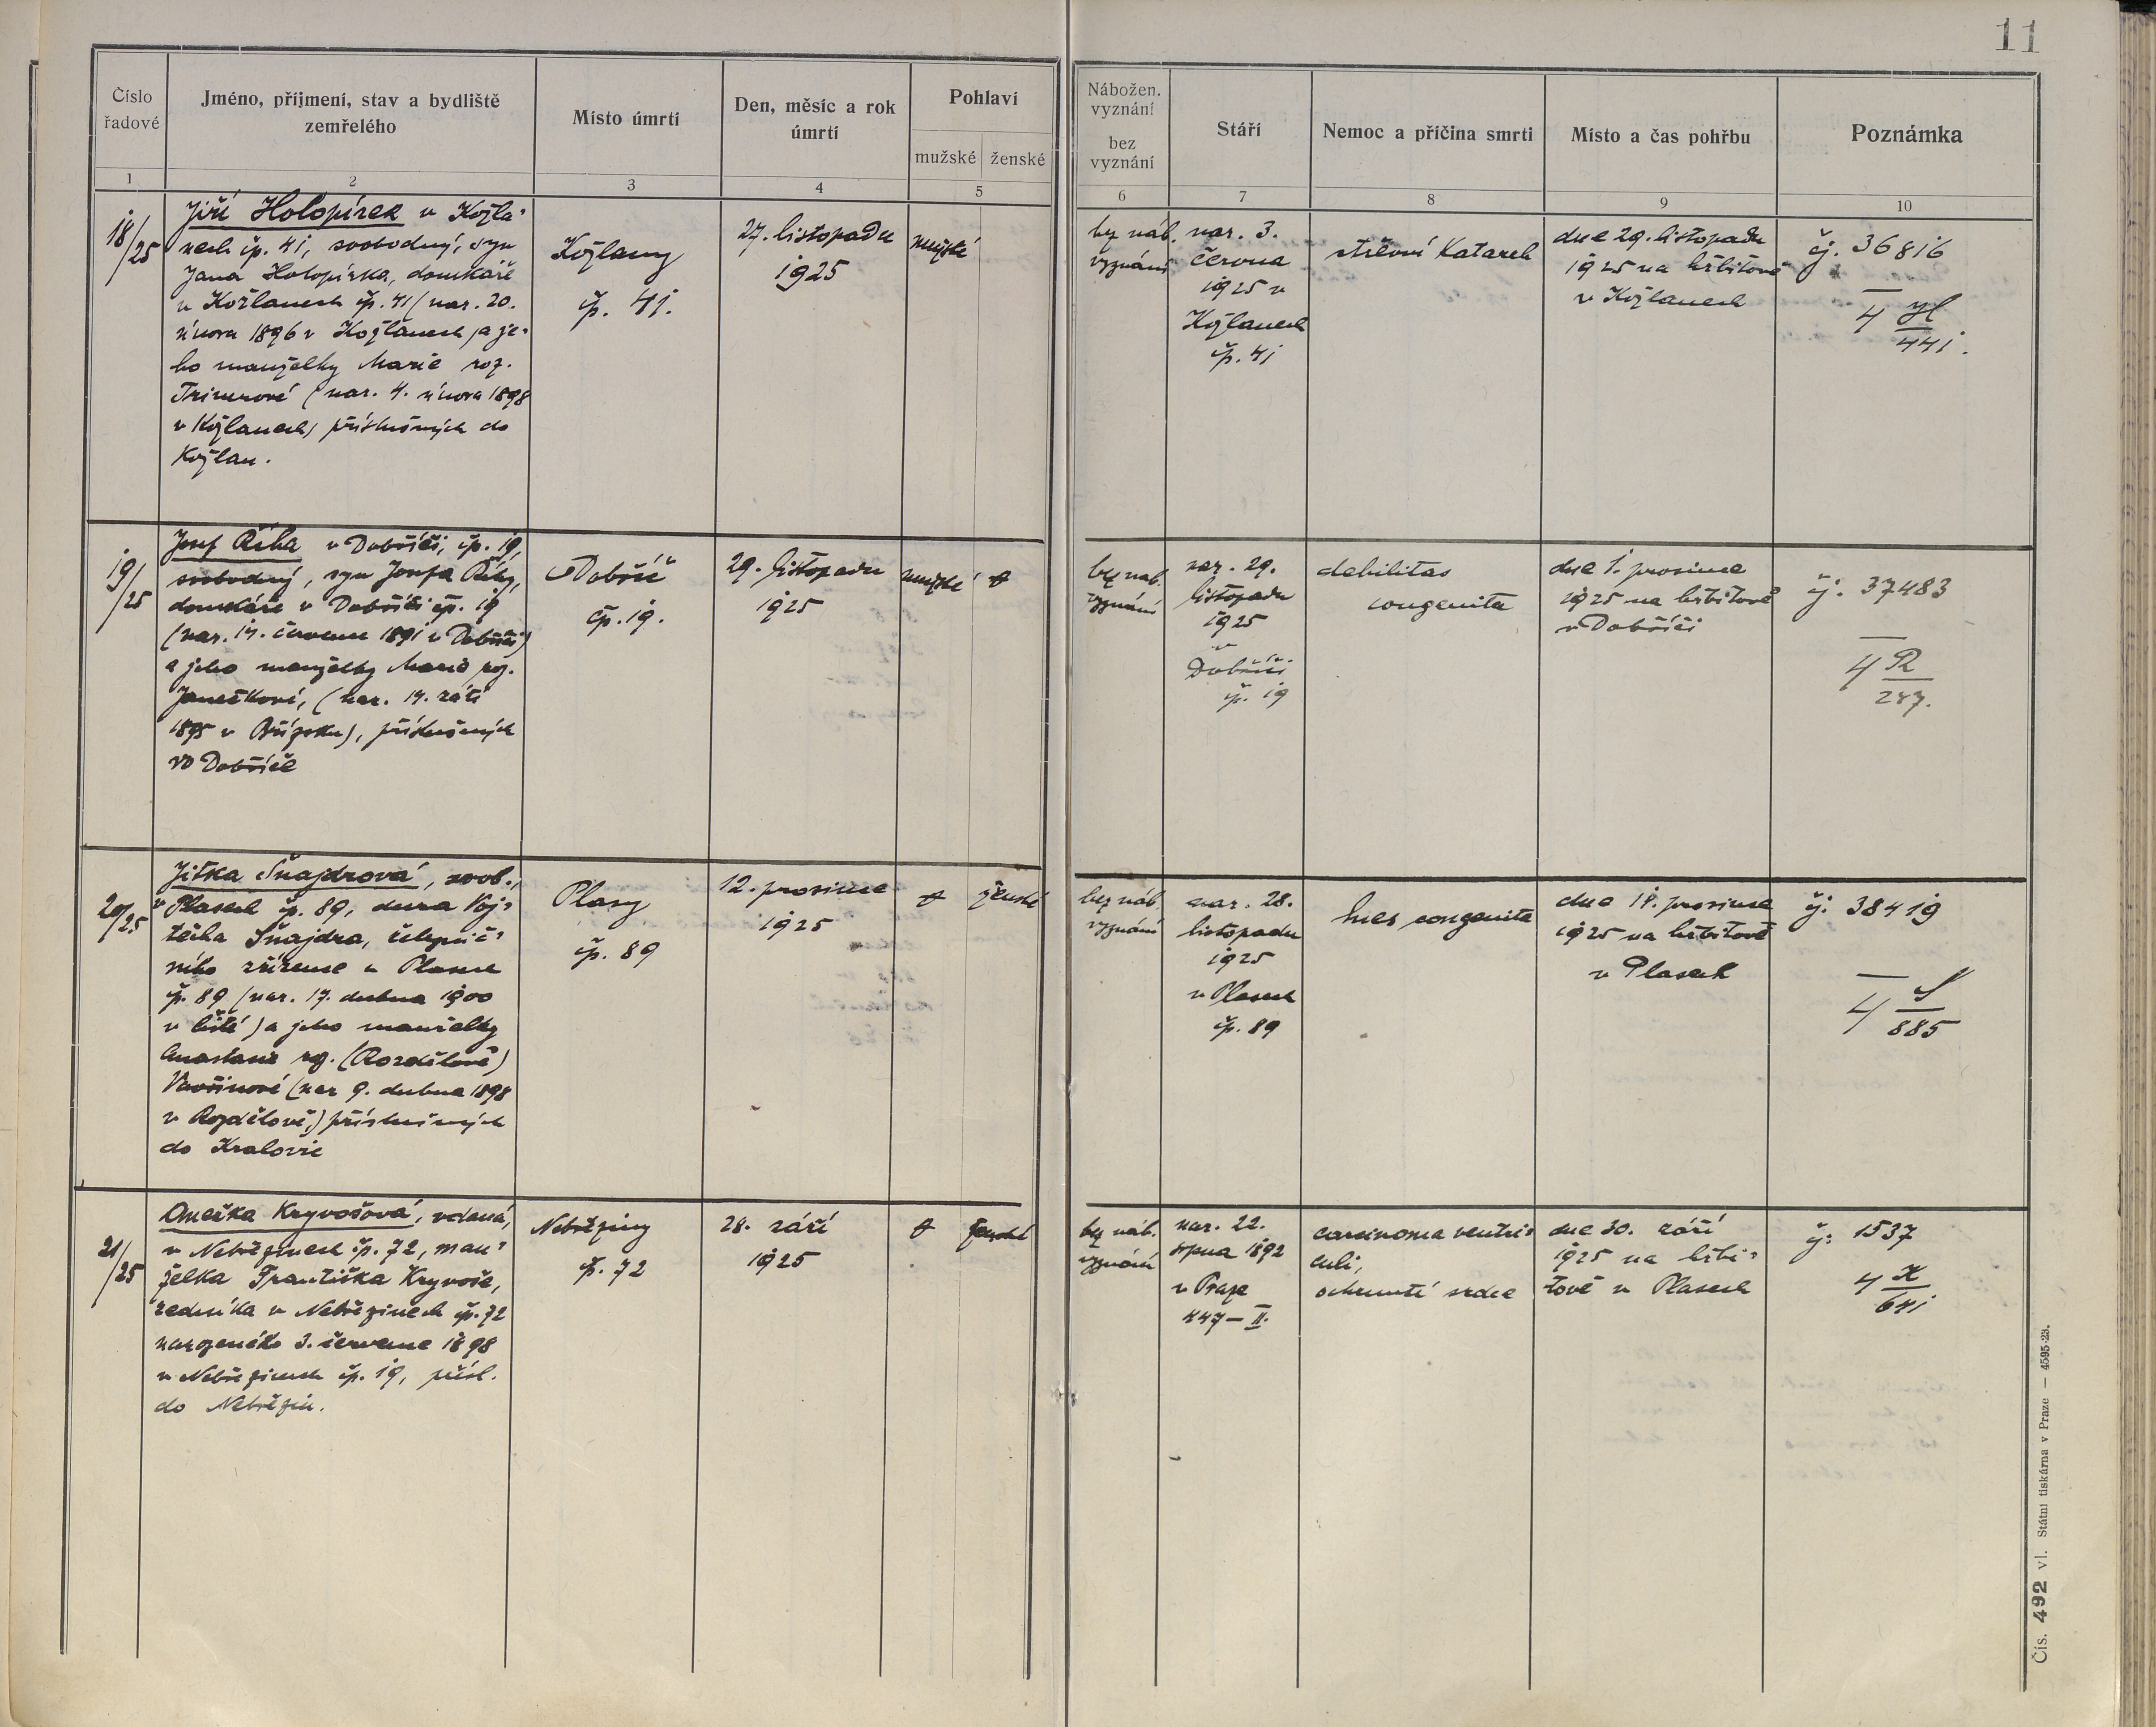 11
Číslo
řadové
Jméno, příjmení, stav a bydliště
zemřelého
Místo úmrtí
Den, měsíc a rok
úmrtí
Pohlaví
mužské ženské
Nábožen.
vyznání
bez
vyznání
Stáří
Nemoc a příčina smrti
Místo a čas pohřbu
Poznámka
1 2 3 4 5 6 7 8 9 10
18/25
Jiří Holopírek v Kožla-
nech čp. 41, svobodný, syn
Jana Holopírka, domkáře
v Kožlanech čp. 41 (nar. 20.
února 1896 v Kožlanech) a je-
ho manželky Marie roz.
(nar. 4. února 1898
v Kožlanech) příslušných do
Kožlan.
Kožlany
čp. 41.
27. listopadu
1925
mužské
bez náb.
vyznání
nar. 3.
června
1925 v
Kožlanech
čp. 41
střevní katareh
dne 29. listopadu
1925 na hřbitově
v Kožlanech
čj. 36816
4 H
441.
19/25
Josef Říha v Dobříči, čp. 19,
svobodný, syn Josefa Říhy,
domkáře v Dobříči čp. 19
(nar. 14. července 1891 v Dobříči)
a jeho manželky Marie roz.
Janečkové, (nar. 14. září
1895 v Břízsku), příslušných
do Dobříče
Dobříč
čp. 19.
29. listopadu
1925
mužské
bez náb.
vyznání
nar. 29.
listopadu
1925
v
Dobříči
čp. 19
debilitas
congenita
dne 1. prosince
1925 na hřbitově
v Dobříči
čj. 37483
4 R
287.
20/25
Jitka Šnajdrová, svob.,
v Plasech čp. 89, dcera Voj-
těcha Šnajdra, železnič-
ního zřízence v Plasech
čp. 89 (nar. 17. dubna 1900
v ) a jeho manželky
Anastasie roz. (Rozdělové)
Vavřinové (nar 9. dubna 1898
v Rozdělově,) příslušných
do Kralovic
Plasy
čp. 89
12. prosince
1925
ženské
bez náb.
vyznání
nar. 28.
listopadu
1925
v Plasech
čp. 89
lues congenita
dne 14. prosince
1925 na hřbitově
v Plasech
čj. 38419
4 S
885
21/25
Anežka Kryvošová, vdaná,
v Nebřezinech čp. 72, man-
želka Františka Kryvoše,
zedníka v Nebřezinech čp. 72
narozeného 3. července 1898
v Nebřezinech čp. 19, přísl.
do Nebřezin.
Nebřeziny
čp. 72
28. září
1925
ženské
bez náb.
vyznání
nar. 22.
srpna 1892
v Praze
447 – II.
carcinoma ventri-
culi,
ochrnutí srdce
dne 30. září
1925 na hřbi-
tově v Plasech
čj. 1537
4 K
641
Čís. 492 vl. Státní tiskárna v Praze — 4595-23.